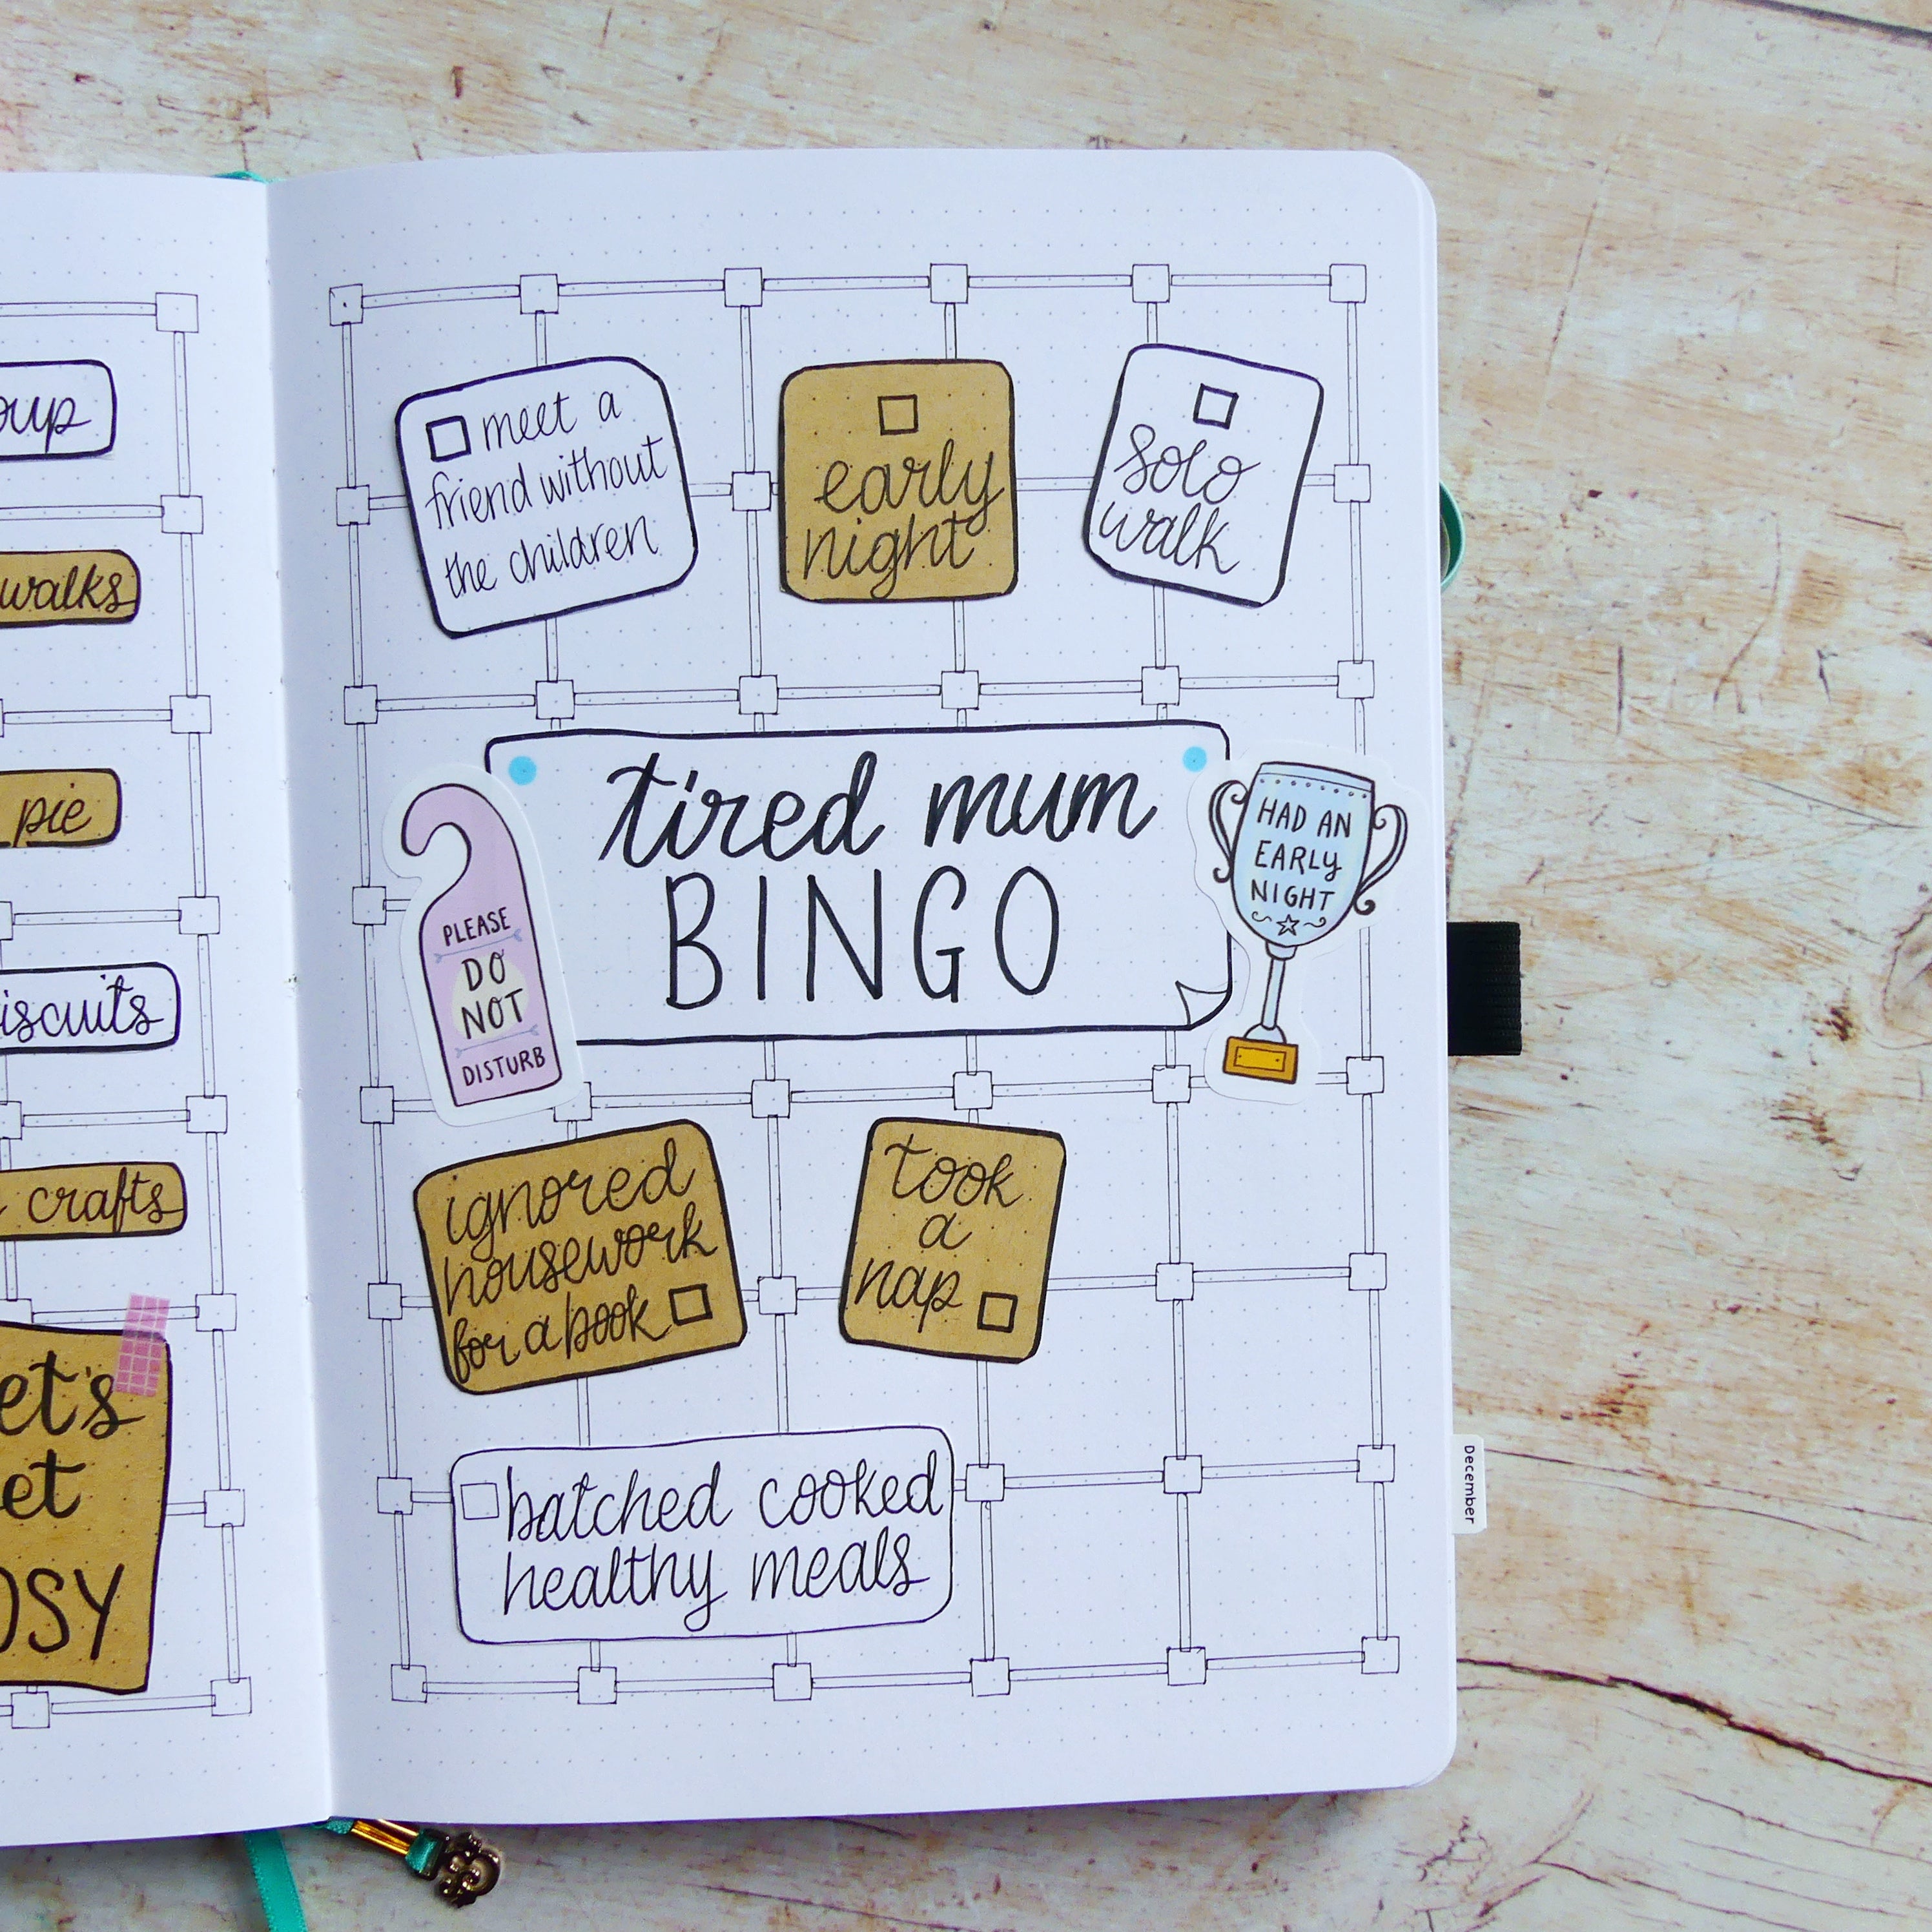 walks
pie
crafts
meet a
friend without
the children
early
night
solo
walk
tired mum
BINGO
PLEASE
DO
NOT
DISTURB
HAD AN
EARLY
NIGHT
ignored
housework
for a book
took
a
nap
batched cooked
healthy meals
December